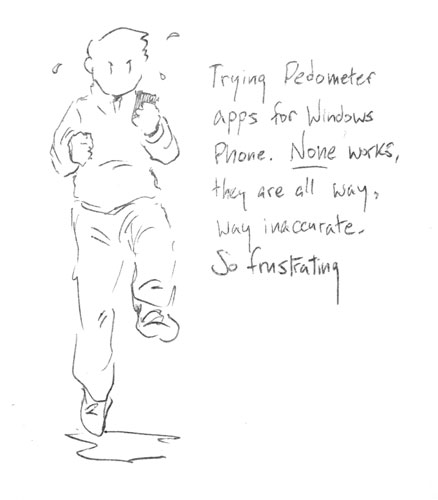 Trying Pedometer
apps for Windows
Phone. None works,
they are all way,
way inaccurate.
So frustrating